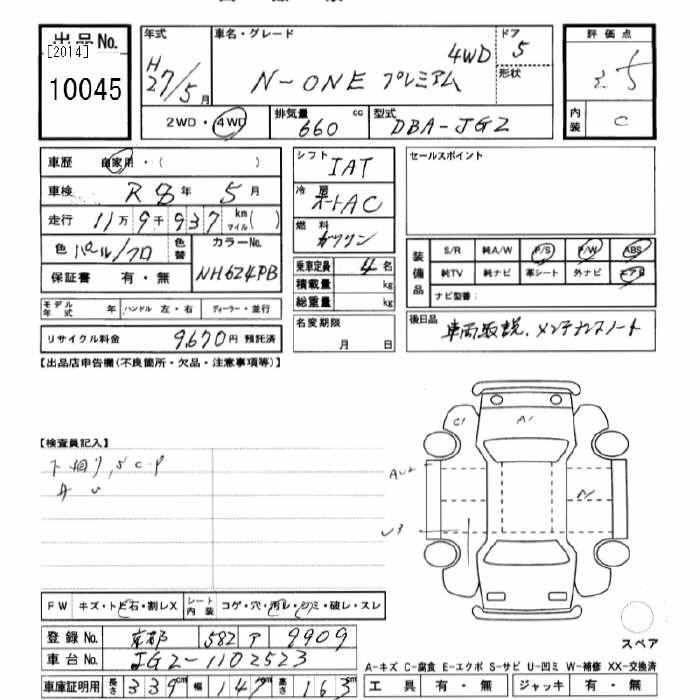 出品No.
[2014]
10045
年式
H
27/5月
車名・グレード
4WD
N-ONE プレミアム
ドア
5
形状
2WD・4WD
排気量 cc
660
型式
DBA-JG2
評価点
5
内装
C
車歴 自家用・( )
車検 R8年 5月
走行 11万9千937 km マイル( )
色 パール/クロ
色替
カラーNo.
NH624PB
保証書 有・無
モデル年式 年
ハンドル 左・右
ディーラー・並行
リサイクル料金 9,670円 預託済
シフト
IAT
冷房
オートAC
燃料
ガソリン
乗車定員 4名
積載量 kg
総重量 kg
名変期限
月 日
セールスポイント
装備品
S/R 純A/W P/S P/W ABS
純TV 純ナビ 革シート 外ナビ エアB
ナビ型番:
後日品
車両取説、メンテナンスノート
【出品店申告欄(不良箇所・欠品・注意事項等)】
【検査員記入】
下廻り,SC.P
C1
A1
AU2
U3
FW キズ・トビ石・割レX
シート内装 コゲ・穴・汚レ・シミ・破レ・スレ
登録No. 京都 582 ア 9909
車台No. JG2-1102523
車庫証明用 長さ 339cm 幅 147cm 高さ 163cm
スペア
A-キズ C-腐食 E-エクボ S-サビ U-凹ミ W-補修 XX-交換済
工具 有・無
ジャッキ 有・無